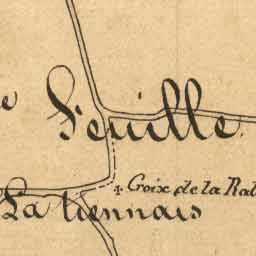 Feuille
Croix de la
La tiennais